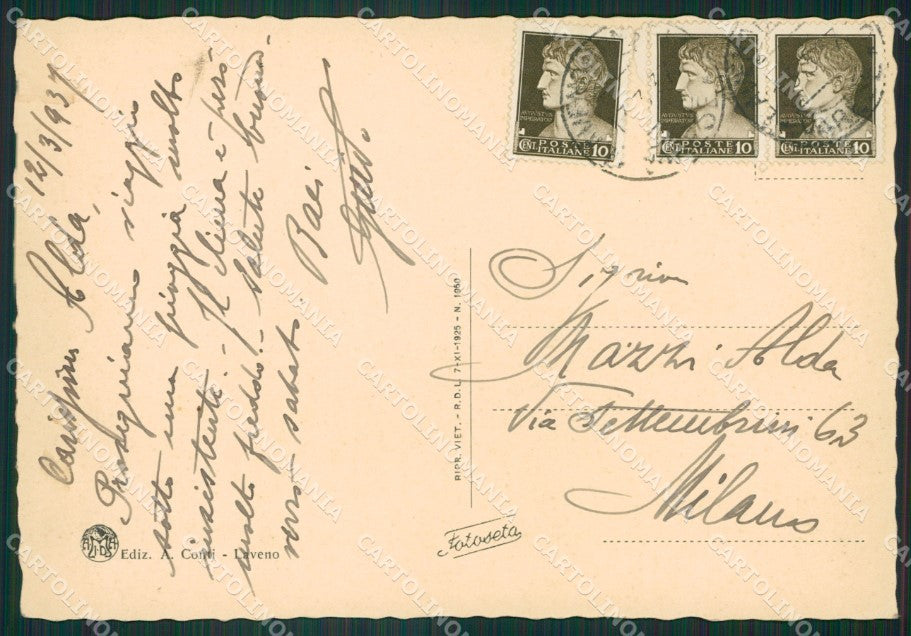 12/3/937
Carissima Alda,
Proseguiamo viaggio
sotto una pioggia molto
insistente - Il clima è però
molto freddo. - Salute
sabato. Baci
Sig.na
Mazzi Alda
Via Settembrini 63
Milano
AVGVSTVS
IMPERATOR
POSTE
CENT. ITALIANE 10
AVGVSTVS
IMPERATOR
POSTE
CENT. ITALIANE 10
AVGVSTVS
IMPERATOR
POSTE
CENT. ITALIANE 10
RIPR. VIET. - R.D.L. 7-XI-1925 - N. 1950
Fotoseta
Ediz. A. Conti - Laveno
CARTOLINOMANIA